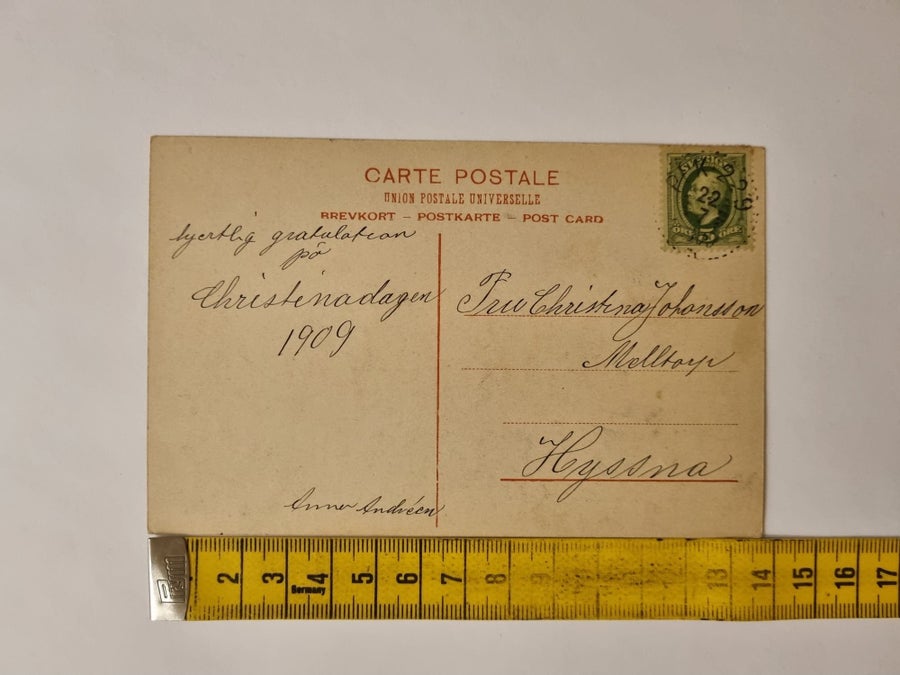 CARTE POSTALE
UNION POSTALE UNIVERSELLE
BREVKORT – POSTKARTE – POST CARD
hjertlig gratulation
på
Christinadagen
1909
Anna Andréen
Fru Christina Johansson
Melltorp
Hyssna
PKXP 229
22
7
5
ÖRE
2 3 4 5 6 7 8 9 13 14 15 16 17
Germany